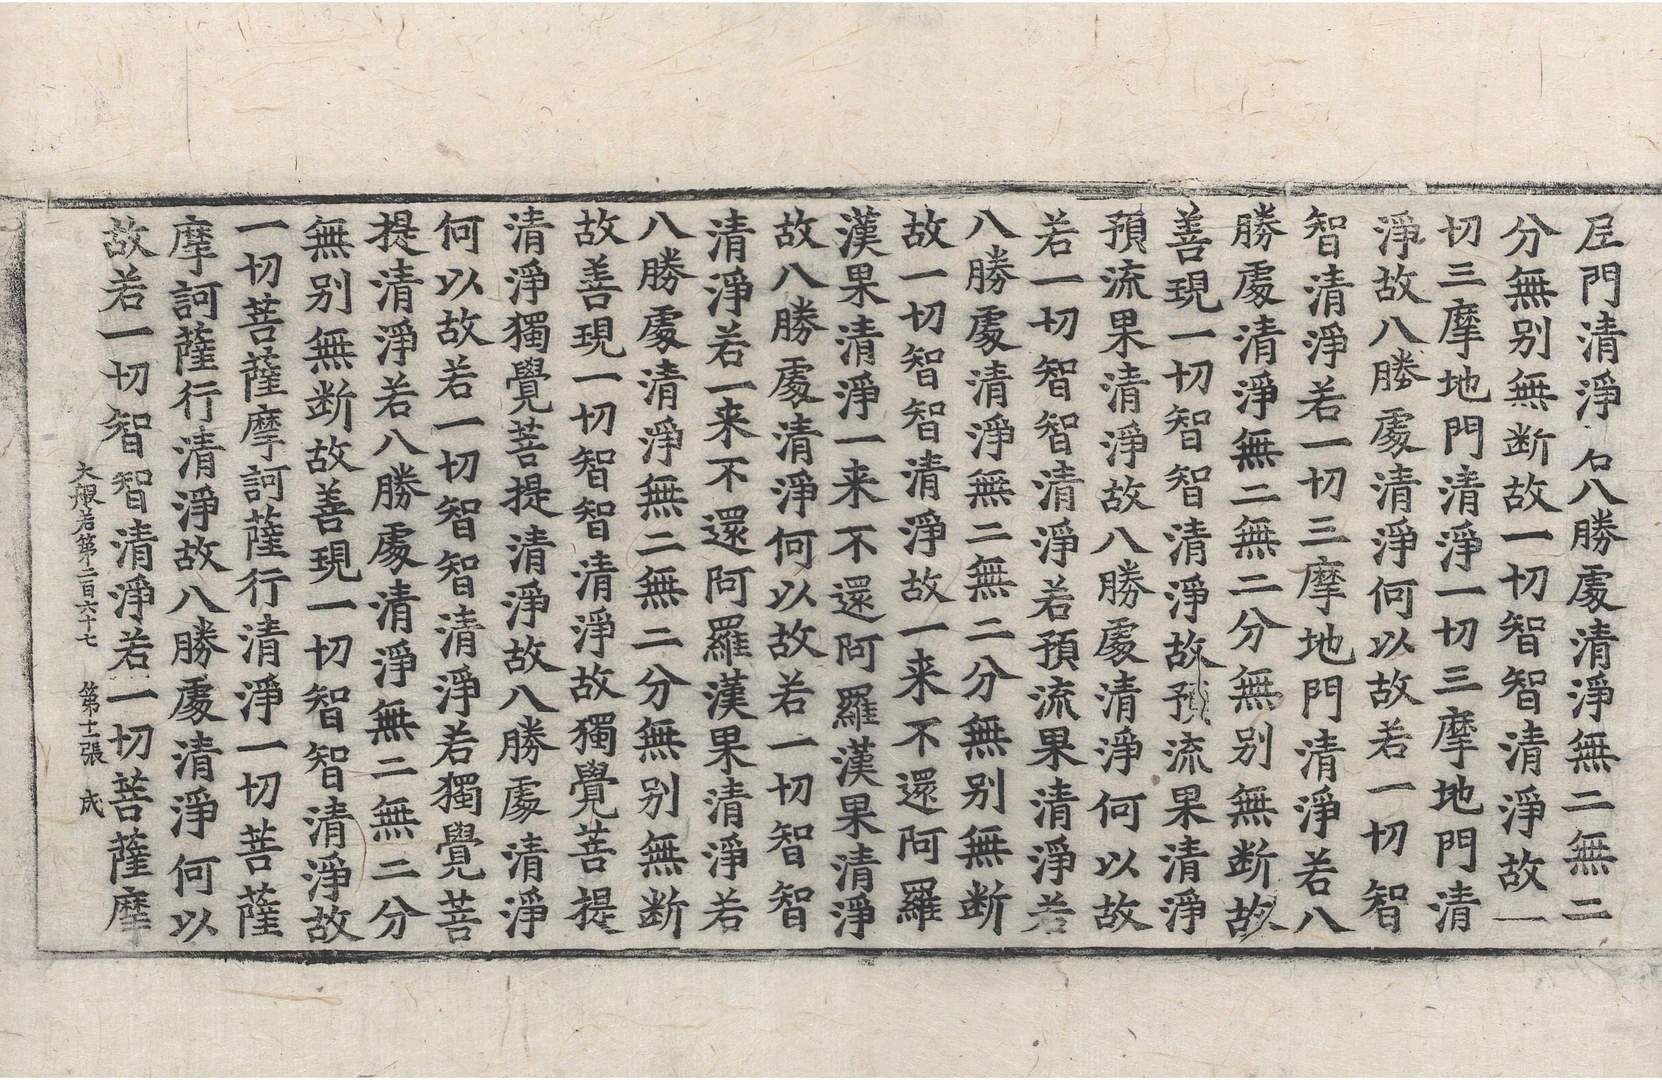 尼門清淨若八勝處清淨無二無二
分無别無断故一切智智清淨故一
切三摩地門清淨一切三摩地門清
淨故八勝處清淨何以故若一切智
智清淨若一切三摩地門清淨若八
勝處清淨無二無二分無别無断故
善現一切智智清淨故預流果清淨
預流果清淨故八勝處清淨何以故
若一切智智清淨若預流果清淨若
八勝處清淨無二無二分無别無断
故一切智智清淨故一来不還阿羅
漢果清淨一来不還阿羅漢果清淨
故八勝處清淨何以故若一切智智
清淨若一来不還阿羅漢果清淨若
八勝處清淨無二無二分無别無断
故善現一切智智清淨故獨覺菩提
清淨獨覺菩提清淨故八勝處清淨
何以故若一切智智清淨若獨覺菩
提清淨若八勝處清淨無二無二分
無别無断故善現一切智智清淨故
一切菩薩摩訶薩行清淨一切菩薩
摩訶薩行清淨故八勝處清淨何以
故若一切智智清淨若一切菩薩摩
大般若第二百六十七 第十一張 成